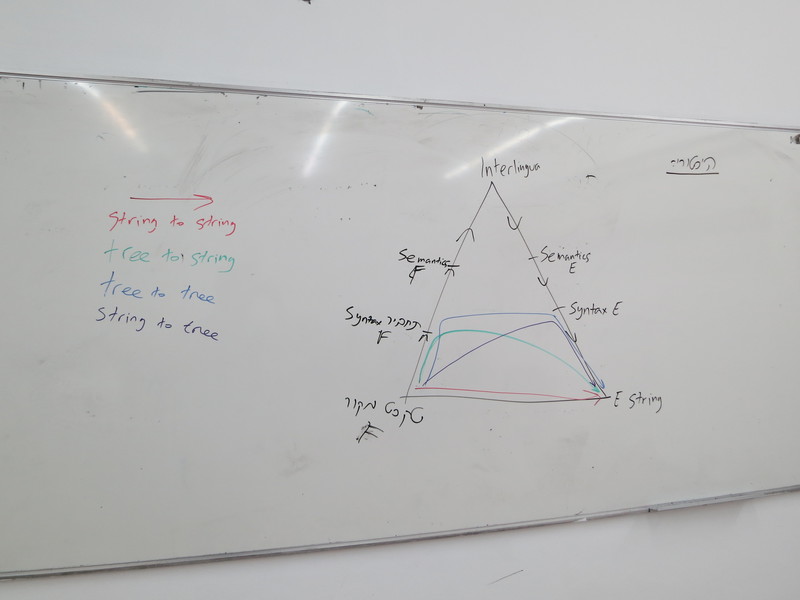 היסטוריה
Interlingua
string to string
tree to string
tree to tree
string to tree
Semantics
F
Semantics
E
Syntax תחביר
F
Syntax E
טקסט מקור
F
E String